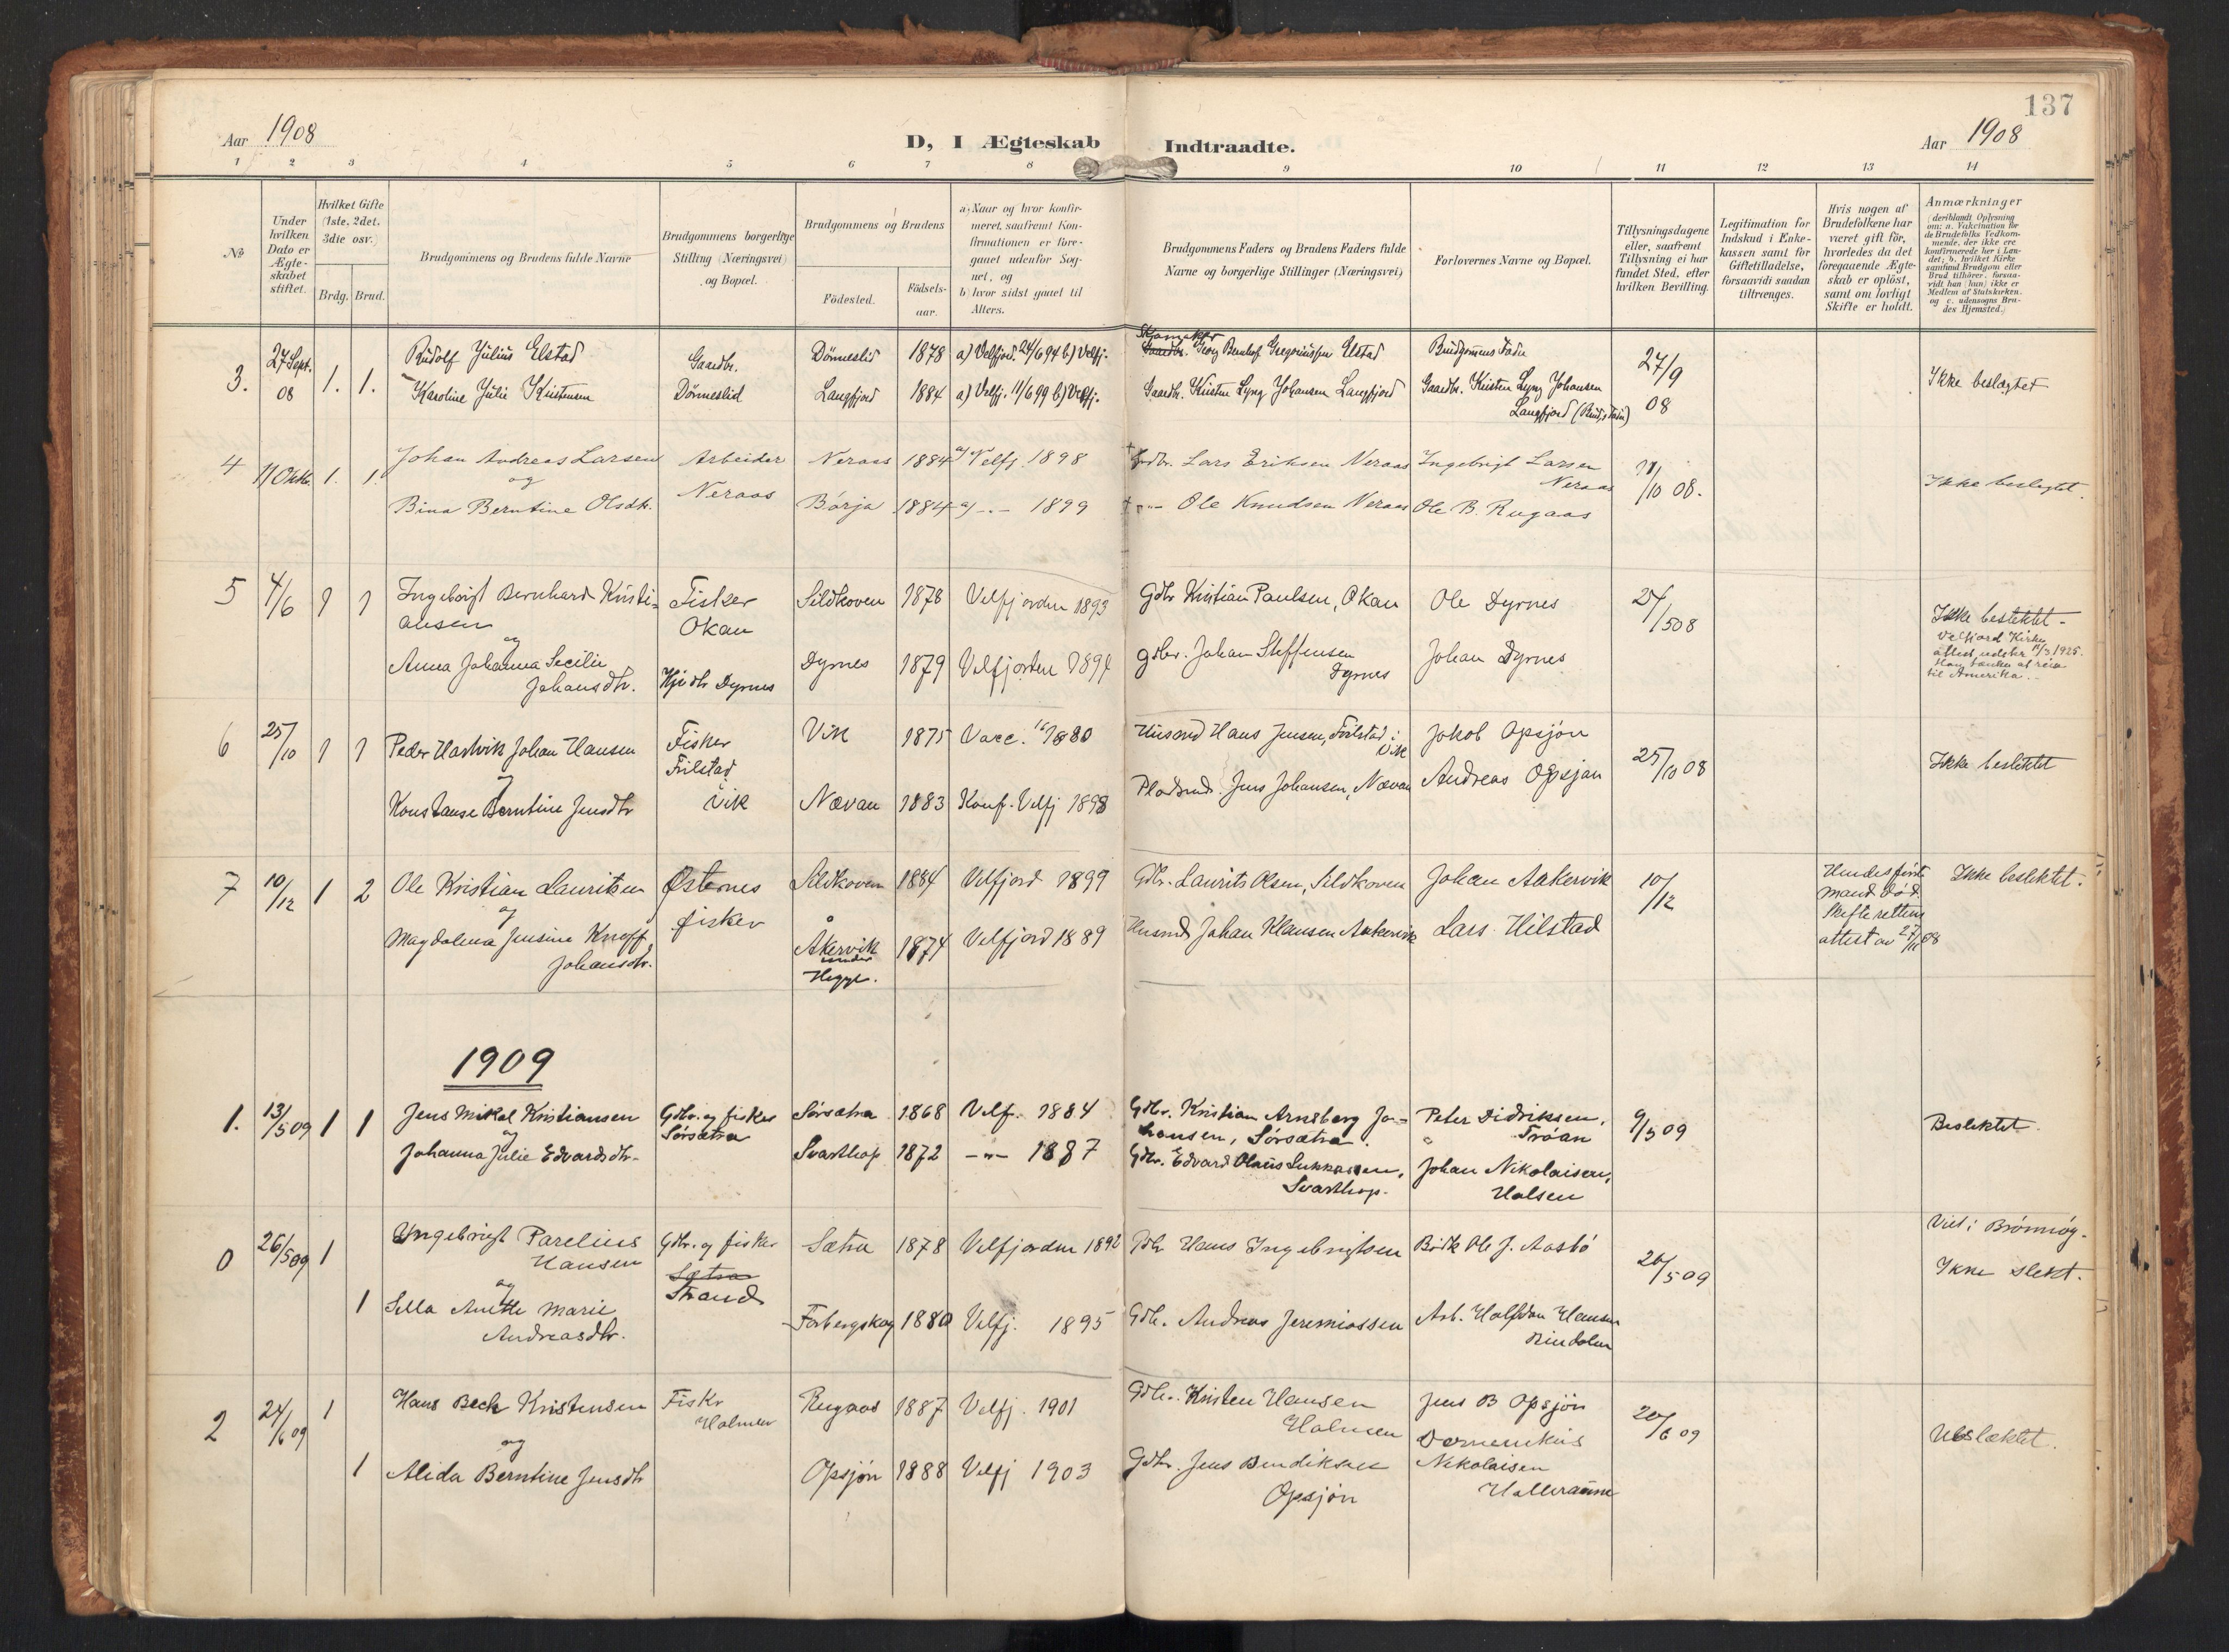 137
Aar 1908
D, I Ægteskab Indtraadte.
Aar 1908
1 2 3 4 5 6 7 8 9 10 11 12 13 14
№
Under
hvilken
Dato er
Ægte-
skabet
stiftet.
Hvilket Gifte
(1ste, 2det,
3die osv.)
Brdg. Brud.
Brudgommens og Brudens fulde Navne
Brudgommens borgerlige
Stilling (Næringsvei)
og Bopæl.
Brudgommens og Brudens
Födested.
Födsels-
aar.
a) Naar og hvor konfir-
meret, saafremt Kon-
firmationen er fore-
gaaet udenfor Sog-
net, og
b) hvor sidst gaaet til
Alters.
Brudgommens Faders og Brudens Faders fulde
Navne og borgerlige Stillinger (Næringsvei)
Forlovernes Navne og Bopæl.
Tillysningsdagene
eller, saafremt
Tillysning ei har
fundet Sted, efter
hvilken Bevilling.
Legitimation for
Indskud i Enke-
kassen samt for
Giftetilladelse,
forsaavidt saadan
tiltrænges.
Hvis nogen af
Brudefolkene har
været gift før,
hvorledes da det
foregaaende Ægte-
skab er opløst,
samt om lovligt
Skifte er holdt.
Anmærkninger
(deriblandt Oplysning
om: a. Vakcination for
de Brudefolks Vedkom-
mende, der ikke ere
konfirmerede her i Lan-
det; b. hvilket Kirke
samfund Brudgom eller
Brud tilhörer, forsaa-
vidt han (hun) ikke er
Medlem af Statskirken.
og c. udensogns Bru-
des Hjemsted.)
3. 27 Sept. 08 1. 1.
Rudolf Julius Elstad
Karoline Julie Kristensen
Gaardbr.
Dönneslid
Dönneslid 1878 a) Velfjord 24/6 94 b) Velfj.
Langfjord 1884 a) Velfj. 11/6 99 b) Velfj.
Gaardbr. Georg Bernhof Gregoriussen Elstad
Gaardbr. Kristen Lyng Johansen Langfjord
Brudgommens Fader
Gaardbr. Kristen Lyng Johansen
Langfjord
27/9
08
Ikke beslægtet
4 11 Oktb. 1. 1.
Johan Andreas Larsen
og
Bina Berntine Olsdtr.
Arbeider
Neraas
Neraas 1884 a) Velfj. 1898
Börja 1884 a) -.- 1899
† Gdbr. Lars Eriksen Neraas
† -"- Ole Knudsen Neraas
Ingebrigt Larsen
Neraas
Ole B. Rugaas
11/10 08.
Ikke beslegtet.
5 4/6 1 1
Ingebrigt Bernhard Kristi-
ansen
og
Anna Johanna Secilie
Johansdtr.
Fisker
Okan
Dyrnes
Sildhoven 1878 Velfjorden 1893
Dyrnes 1879 Velfjorden 1894
Gdbr Kristian Paulsen, Okan
gdbr. Johan Steffensen
Dyrnes
Ole Dyrnes
Johan Dyrnes
24/5 08
Ikke beslektet -
Velfjord Kirke
attest
til Amerika.
6 25/10 1 1
Peder Hartvik Johan Hansen
og
Konstanse Berntine Jensdtr
Fisker
Frilstad
Vik
Vik 1875 Vacc. 1880
Nævan 1883 Konf. Velfj 1898
Husmd Hans Jensen, Frilstad i
Vik
Pladsmd. Jens Johansen, Nævan
Jakob Opsjön
Andreas Opsjön
25/10 08
Ikke beslektet
7 10/12 1 2
Ole Kristian Lauritsen
og
Magdalena Jensine Knoff
Johansdtr.
Østernes
fisker
Sildhoven 1884 Velfjord 1899
Åkervik
under
Hegge.
1874 Velfjord 1889
Gdbr. Laurits Olsen, Sildhoven
Husmd Johan Klausen Aakervik
Johan Aakervik
Lars Hilstad
10/12
Hendes förste
mand död
Skifterettens
attest av 27/11 08
Ikke beslektet.
1909
1. 13/5 09 1 1
Jens Mikal Kristiansen
og
Johanna Julie Edvardsdtr.
Gdbr. og fisker
Sörsætra
Sörsætra 1868 Velf. 1884
Svarthop 1872 -"- 1887
Gdbr. Kristian Arnsberg Jo-
hansen, Sörsætra.
Gdbr. Edvard Olaüs Lukkassen,
Svarthop.
Peter Didriksen,
Tröan
Johan Nikolaisen,
Halsen
9/5 09
Beslektet
0 26/5 09 1
1
Ingebrigt Parelius
Hansen
og
Sella Anette Marie
Andreasdtr.
Gdbr. og fisker
Sætra
Strand
Sætra 1878 Velfjorden 1892
Forbergskog 1880 Velfj. 1895
Gdbr Hans Ingebrigtsen
Gdbr. Andreas Jeremiassen
Ole J. Aasbö
Arb. Halfdan Hansen
Rindalen
26/5 09
Viet i Brönnöy.
Ikke slekt.
2 24/6 09 1
1
Hans Bech Kristensen
og
Alida Berntine Jensdtr
Fisker
Holmen
Rugaas 1887 Velfj. 1901
Opsjön 1888 Velfj 1903
Gdbr. Kristen Hansen
Holmen
Gdbr. Jens Bendiksen
Opsjön
Jens B Opsjön
Nikolaisen
20/6 09
Ubeslæktet.